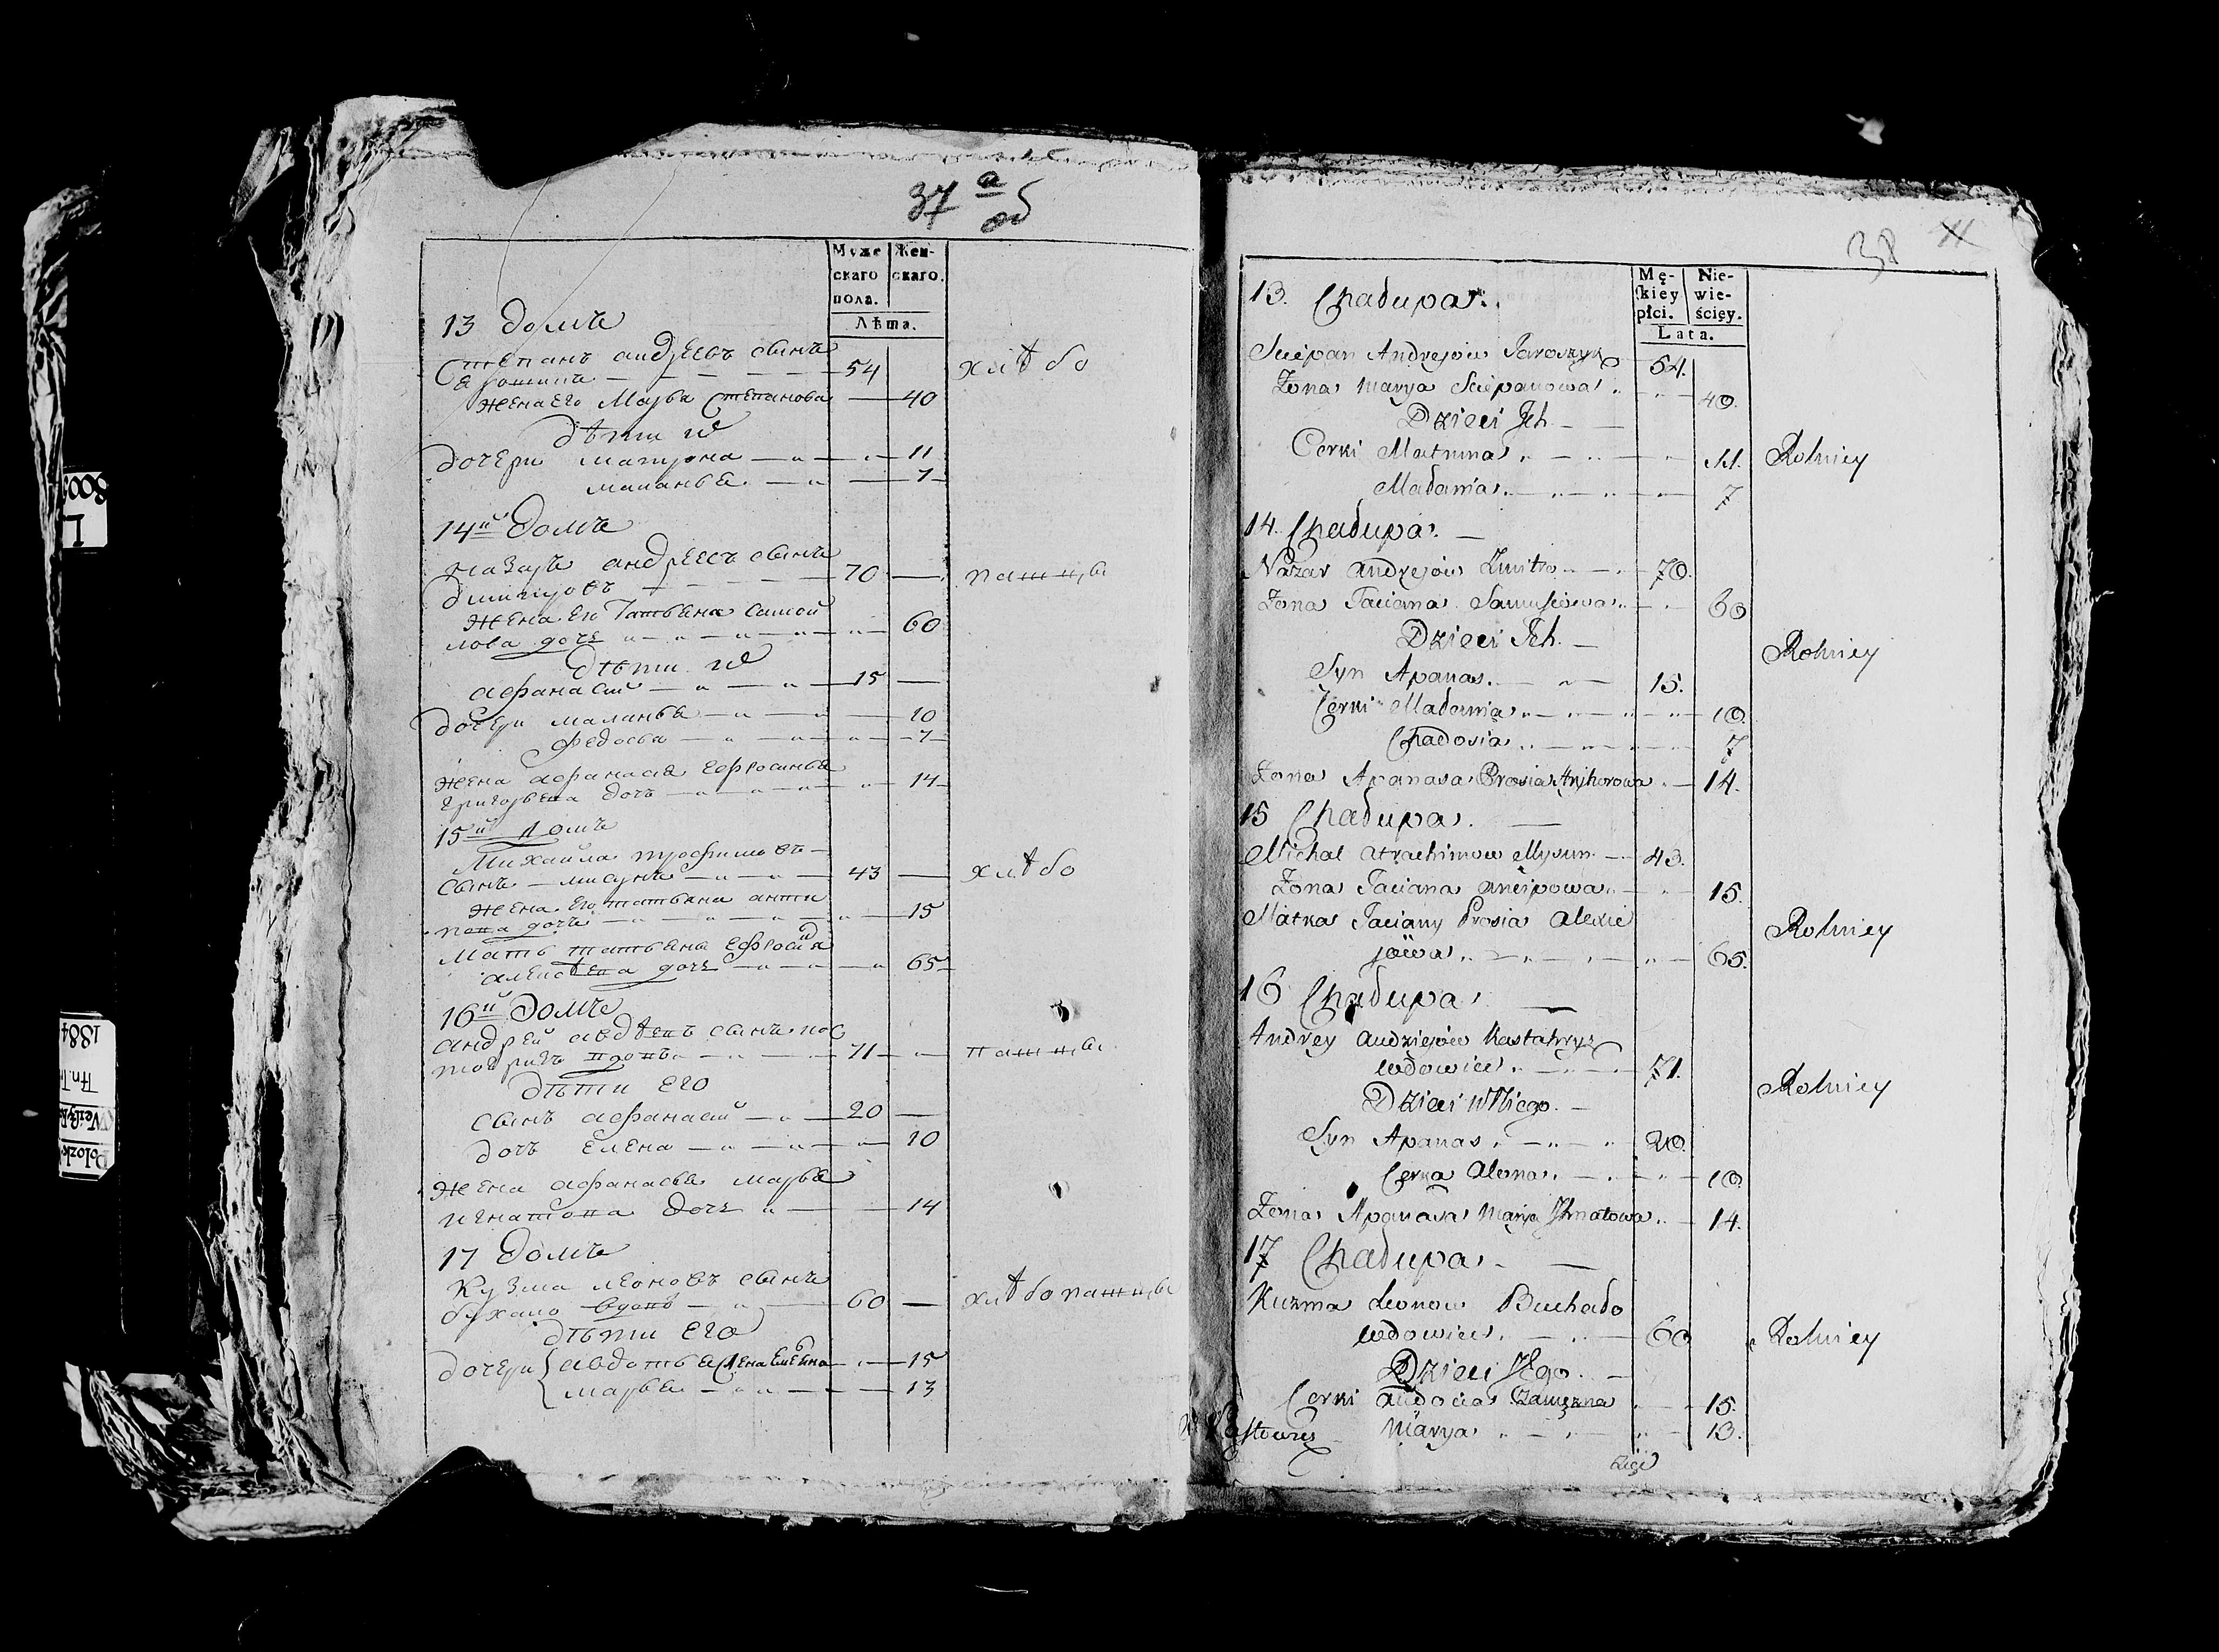 37 а
об
Муже
скаго
пола.
Жен-
скаго.
Лѣта.
13 Домъ
Степанъ андреевъ сынъ
54
хлѣбо
жена его Марья Степанова — 40
дѣти их
дочери матрона — 11
маланья — 7
14й Домъ
назаръ андреевъ сынъ
дмитровъ — 70 —
пашнѣ
жена его Татьяна самой
лова дочь — 60
дѣти их
афанасий — 15 —
дочери маланья — 10
федосья — 7
жена афанасия ефросинья
григорьева дочь — 14
15й Домъ
Михайла трофимовъ
сынъ — мисунъ — 43 —
хлѣбо
жена его татьяна анти
пова дочь — 15
мать татьяны ефросинья
алексѣева дочь — 65
16й Домъ
андрей авдѣевъ сынъ кос
71
пашнѣ
дѣти его
сынъ афанасий — 20 —
дочь елена — 10
жена афанасья марья
игнатова дочь — 14
17 Домъ
Кузма леоновъ сынъ
бухало вдовъ — 60 —
хлѣбопашнѣ
дѣти его
дочери авдотья — 15
марья — 13
38 11
Mę-
skiey
płci.
Nie-
wie-
ściey.
Lata.
13. Chałupa.
Sciepan Andrejow Jaroszyk — 54.
Zona Marya Sciepanowa — 40.
Dzieci Ich —
Corki Matruna — 11.
Rolniey
Małania — 7
14. Chałupa. —
Nazar Andrejow Zmitro — 70.
Zona Taciana Samusiowa — 60
Dzieci Ich —
Rolniey
Syn Apanas — 15.
Cerki Małania — 10.
Chadosia — 7
Zona Apanasa Prosia Hryhorowa — 14.
15 Chałupa. —
Michał Atrachimow Mysun — 43.
Zona Taciana Ancipowa — 15.
Matka Taciany Prosia Alexie
jowa — 65.
Rolniey
16 Chałupa —
Andrey Audziejow Kastahryz
wdowiec — 71.
Rolniey
Dzieci u Niego —
Syn Apanas — 20.
Cerka Alena — 10.
Zona Apanasa Marja Ihnatowa — 14.
17 Chałupa. —
Kuzma Leonow Buchało
wdowiec — 60
Rolniey
Dzieci Jego —
Corki Audocia Zamężna — 15.
Marya — 13.